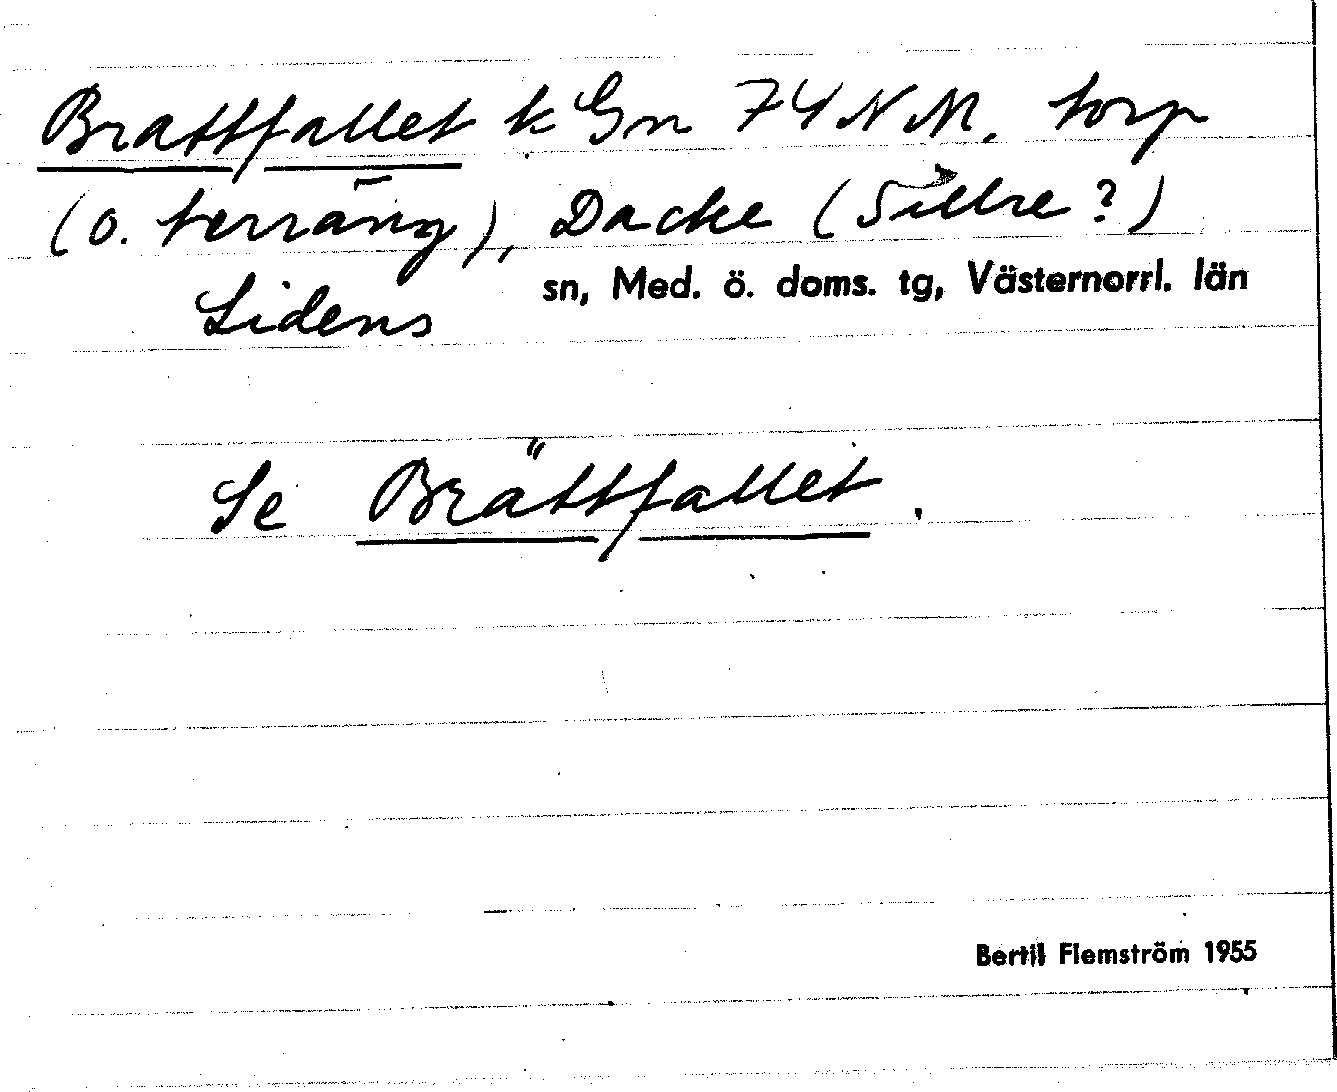 Brattfallet k Gm 74 NM. torp
(o. terräng), Dacke (Sillre?)
Lidens sn, Med. ö. doms. tg, Västernorrl. län
Se Brättfallet.
Bertil Flemström 1955